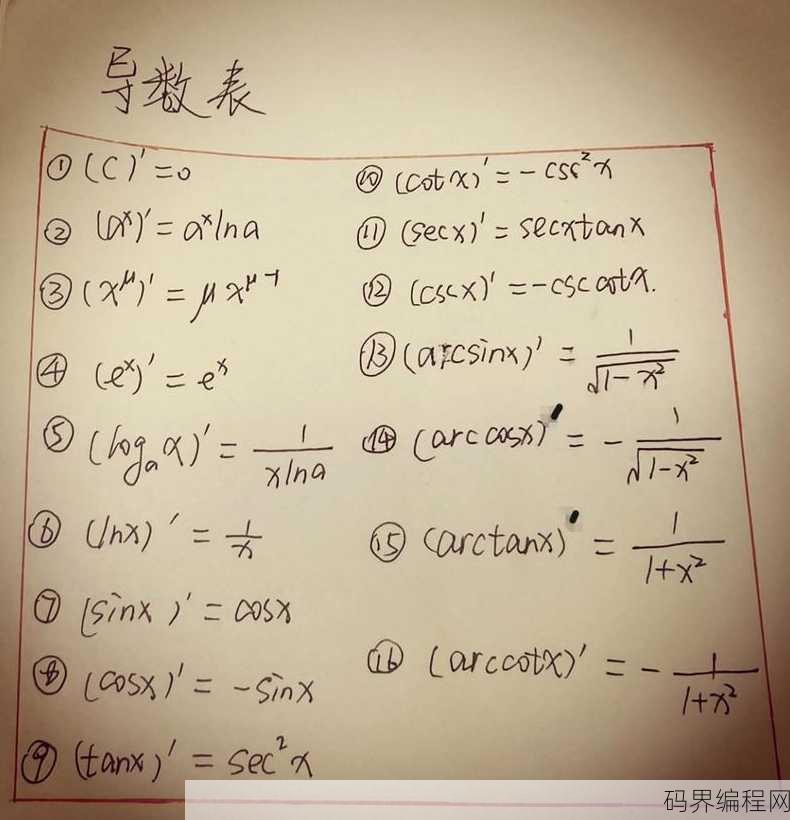 导数表
① (C)' = 0
② (aˣ)' = aˣlna
③ (x^μ)' = μx^(μ-1)
④ (eˣ)' = eˣ
⑤ (logₐx)' = 1/(xlna)
⑥ (lnx)' = 1/x
⑦ (sinx)' = cosx
⑧ (cosx)' = -sinx
⑨ (tanx)' = sec²x
⑩ (cotx)' = -csc²x
⑪ (secx)' = secxtanx
⑫ (cscx)' = -csccotx.
⑬ (arcsinx)' = 1/√(1-x²)
⑭ (arccosx)' = -1/√(1-x²)
⑮ (arctanx)' = 1/(1+x²)
⑯ (arccotx)' = -1/(1+x²)
码界编程网